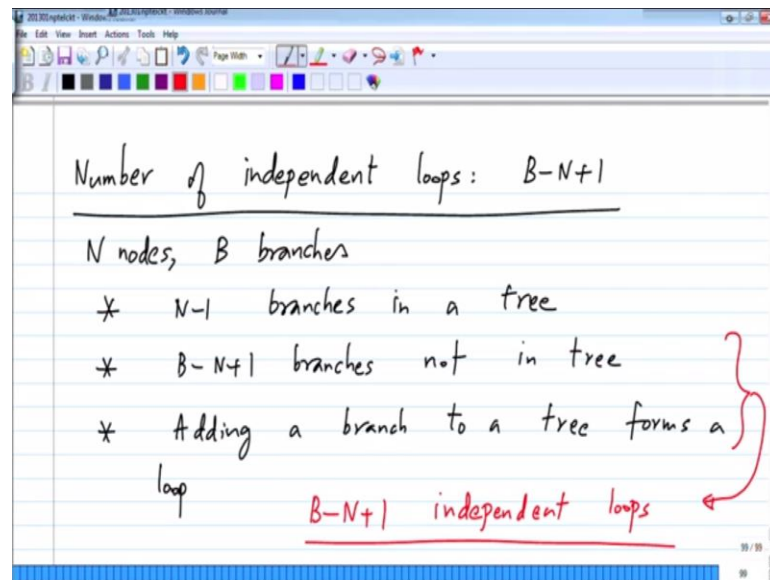 201301nptelckt - Windows Journal
File Edit View Insert Actions Tools Help
Page Width
B I
Number of independent loops: B-N+1
N nodes, B branches
* N-1 branches in a tree
* B-N+1 branches not in tree
* Adding a branch to a tree forms a
loop
B-N+1 independent loops
99/99
99